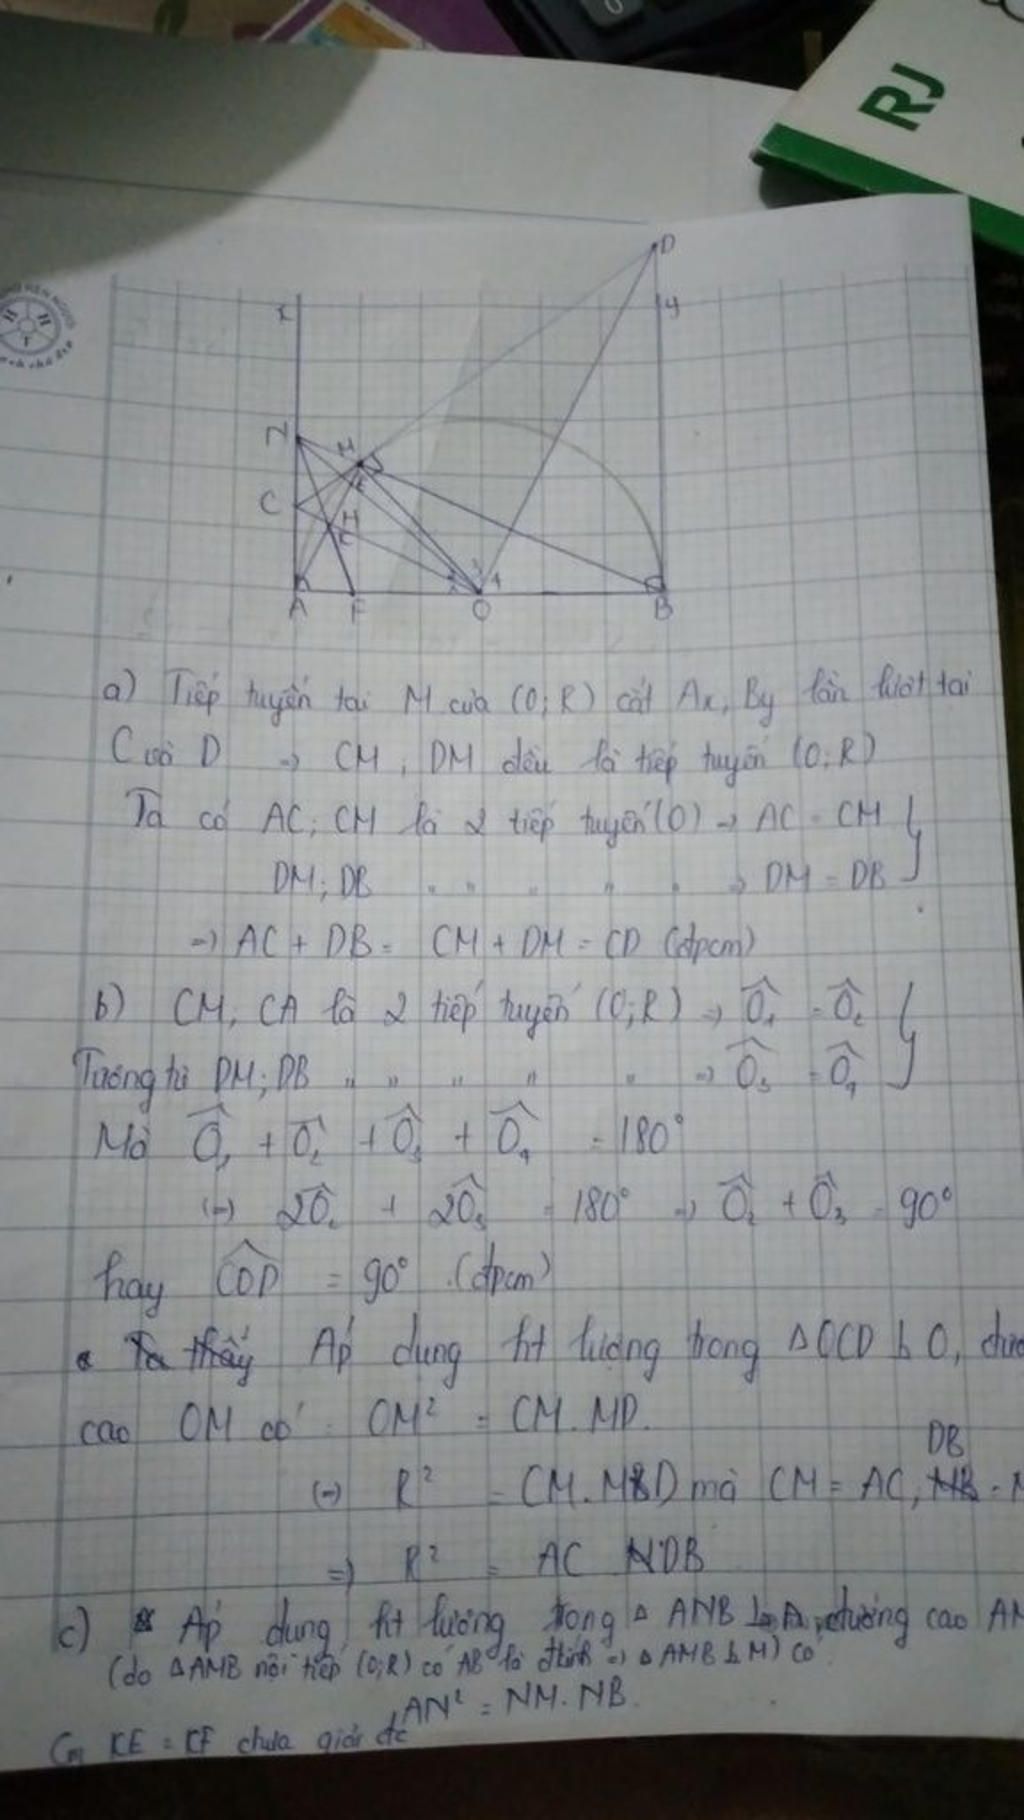 RJ
D
x
y
N
M
C
E
H
A
F
O
B
a) Tiếp tuyến tại M của (O;R) cắt Ax, By lần lượt tại
C và D → CM, DM đều là tiếp tuyến (O;R)
Ta có AC; CM là 2 tiếp tuyến (O) → AC = CM
DM; DB " " " " " ⇒ DM = DB
⇒ AC + DB = CM + DM = CD (đpcm)
b) CM, CA là 2 tiếp tuyến (O;R) → Ô1 = Ô2
Tương tự DM; DB " " " " " → Ô3 = Ô4
Mà Ô1 + Ô2 + Ô3 + Ô4 = 180°
(=) 2Ô2 + 2Ô3 = 180° → Ô2 + Ô3 = 90°
hay COD = 90° (đpcm)
Ta thấy Áp dụng ht lượng trong ΔOCD ⊥ O,
cao OM có OM² = CM.MD.
DB
(=) R² = CM.MD mà CM = AC,
⇒ R² = AC DB
c) Áp dụng ht lượng trong Δ ANB ⊥ A, đường cao AM
(do ΔAMB nội tiếp (O;R) có AB là đkính ⇒ Δ AMB ⊥ M) có
AN² = NM.NB.
Cm KE = KF chưa giải đc